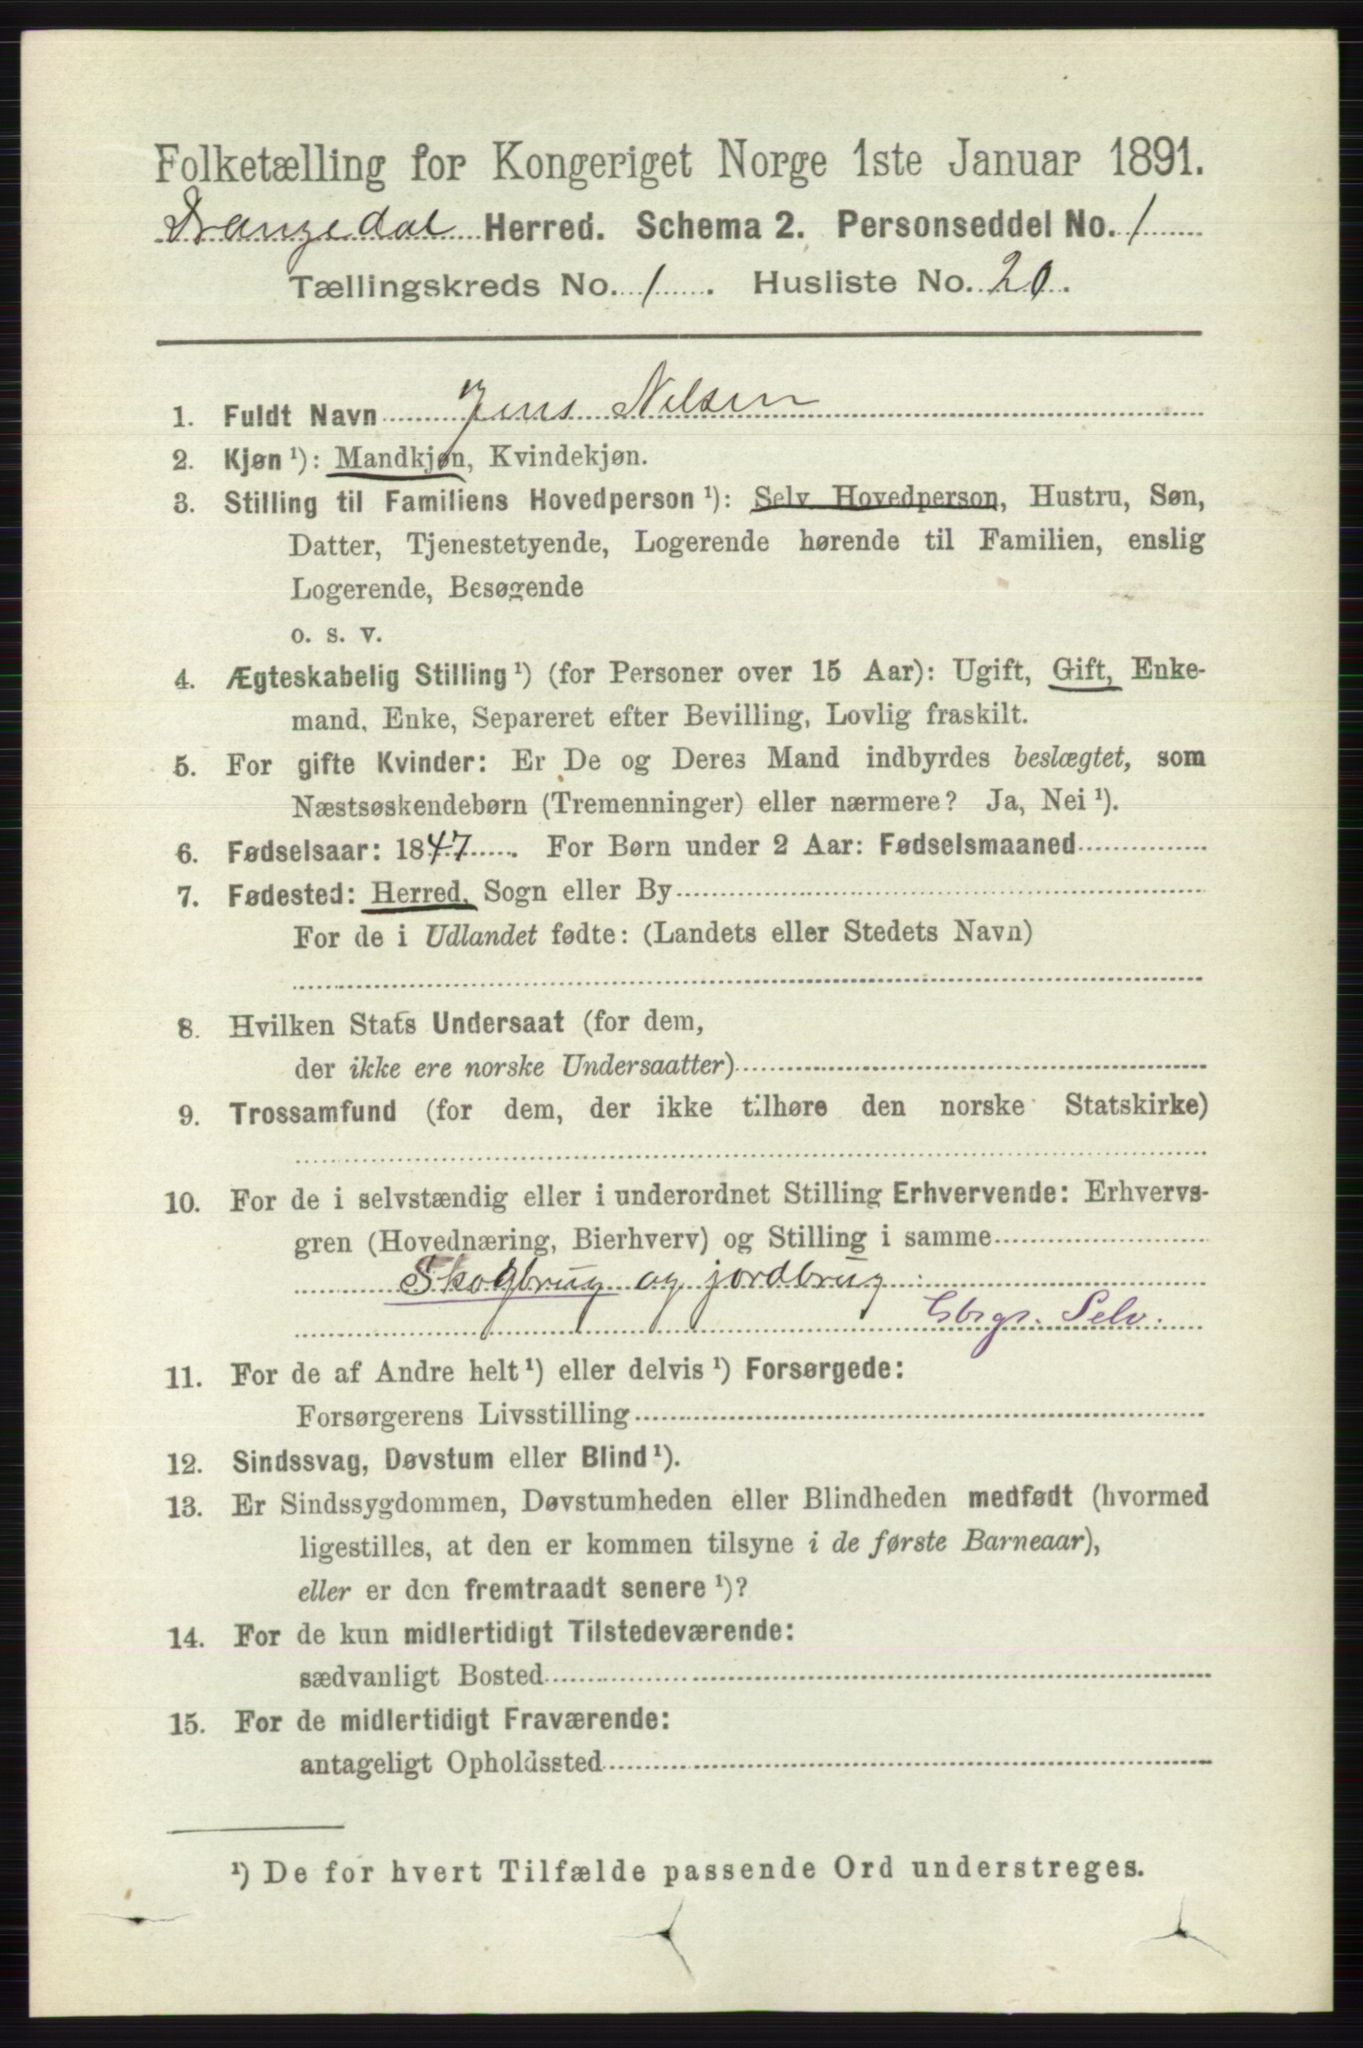 Folketælling for Kongeriget Norge 1ste Januar 1891.
Drangedal Herred. Schema 2. Personseddel No. 1
Tællingskreds No. 1. Husliste No. 20.
1. Fuldt Navn Jens Nilsen
2. Kjøn ¹): Mandkjøn, Kvindekjøn.
3. Stilling til Familiens Hovedperson ¹): Selv Hovedperson, Hustru, Søn,
Datter, Tjenestetyende, Logerende hørende til Familien, enslig
Logerende, Besøgende
o. s. v.
4. Ægteskabelig Stilling ¹) (for Personer over 15 Aar): Ugift, Gift, Enke-
mand, Enke, Separeret efter Bevilling, Lovlig fraskilt.
5. For gifte Kvinder: Er De og Deres Mand indbyrdes beslægtet, som
Næstsøskendebørn (Tremenninger) eller nærmere? Ja, Nei ¹).
6. Fødselsaar: 1847. For Børn under 2 Aar: Fødselsmaaned
7. Fødested: Herred, Sogn eller By
For de i Udlandet fødte: (Landets eller Stedets Navn)
8. Hvilken Stats Undersaat (for dem,
der ikke ere norske Undersaatter)
9. Trossamfund (for dem, der ikke tilhøre den norske Statskirke)
10. For de i selvstændig eller i underordnet Stilling Erhvervende: Erhvervs-
gren (Hovednæring, Bierhverv) og Stilling i samme
Skogbrug og jordbrug
Gbrgr. Selv.
11. For de af Andre helt ¹) eller delvis ¹) Forsørgede:
Forsørgerens Livsstilling
12. Sindssvag, Døvstum eller Blind ¹).
13. Er Sindssygdommen, Døvstumheden eller Blindheden medfødt (hvormed
ligestilles, at den er kommen tilsyne i de første Barneaar),
eller er den fremtraadt senere ¹)?
14. For de kun midlertidigt Tilstedeværende:
sædvanligt Bosted
15. For de midlertidigt Fraværende:
antageligt Opholdssted
¹) De for hvert Tilfælde passende Ord understreges.